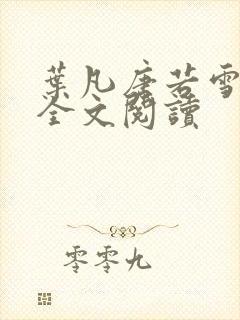 葉凡唐若雪
全文閱讀
零零九